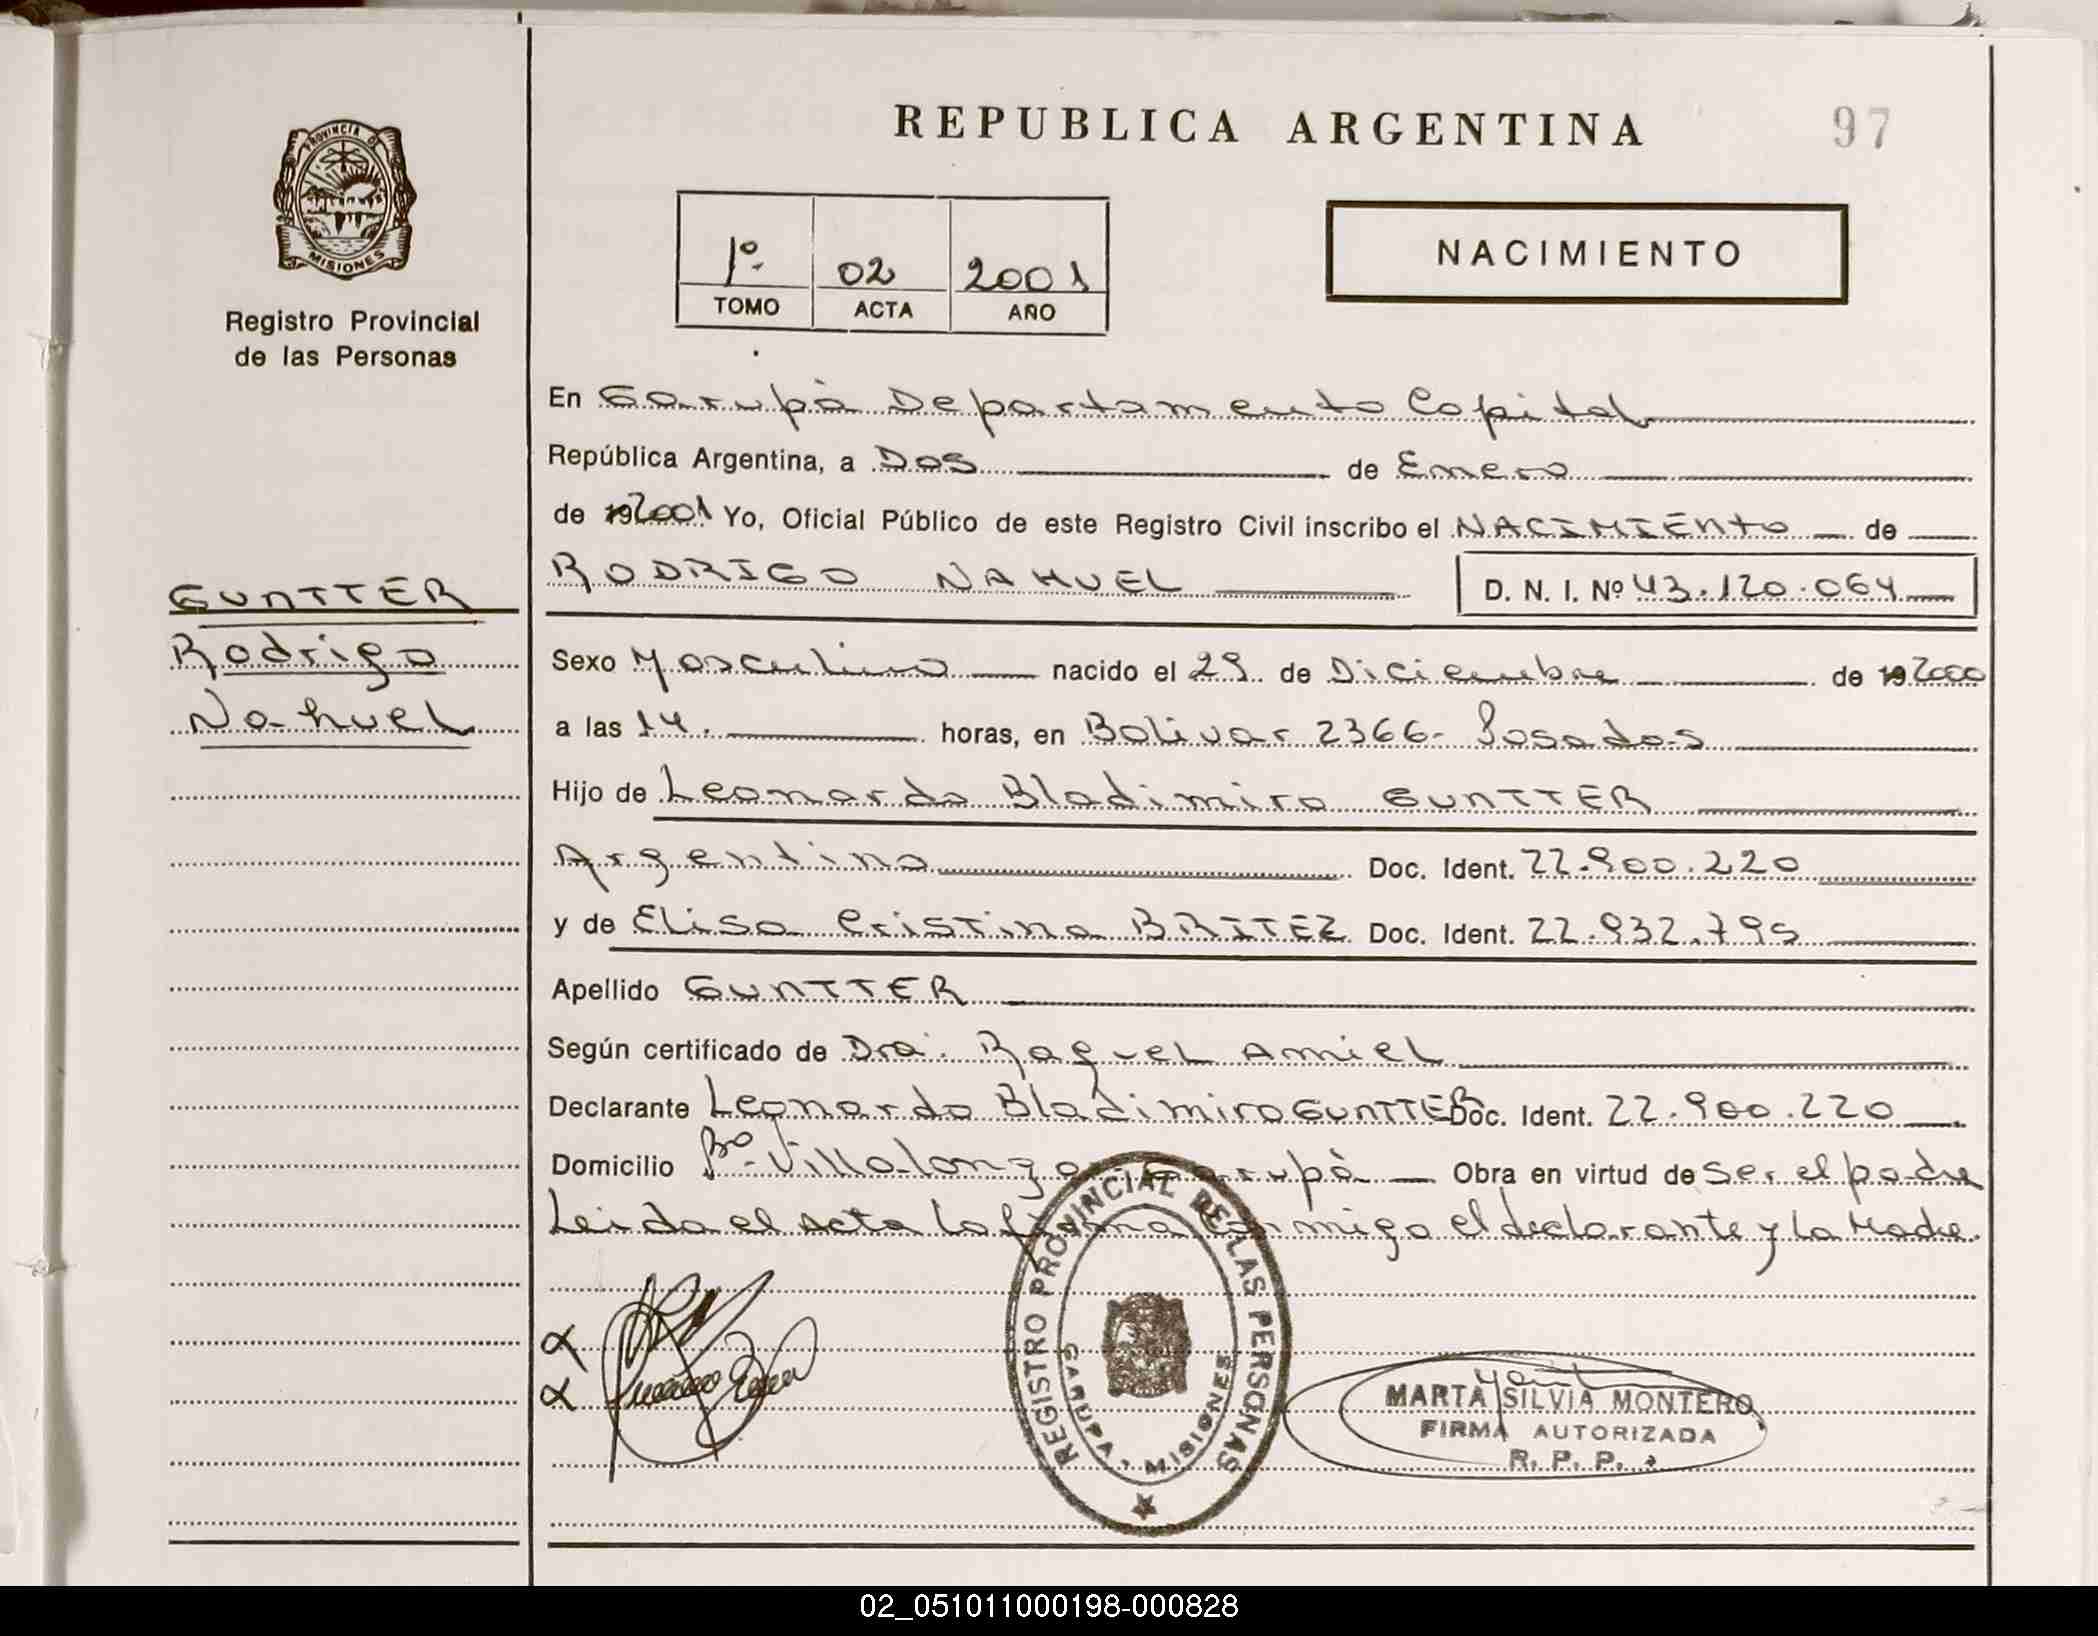 REPUBLICA ARGENTINA
97
PROVINCIA DE
MISIONES
Registro Provincial
de las Personas
1º
02
2001
TOMO
ACTA
AÑO
NACIMIENTO
En Garupà Departamento Capital
República Argentina, a Dos de Enero
de 192001 Yo, Oficial Público de este Registro Civil inscribo el NACIMIENTO de
RODRIGO NAHUEL D. N. I. Nº 43.120.064
GUNTTER
Rodrigo
Nahuel
Sexo Masculino nacido el 29 de Diciembre de 192000
a las 14. horas, en Bolivar 2366- Posadas
Hijo de Leonardo Bladimiro GUNTTER
Argentino Doc. Ident. 22.900.220
y de Elisa Cristina BRITEZ Doc. Ident. 22.932.795
Apellido GUNTTER
Según certificado de Dra. Raquel Amiel
Declarante Leonardo Bladimiro GUNTTER Doc. Ident. 22.900.220
Domicilio Bº Villalonga - Garupà Obra en virtud de Ser el padre
Leida el Acta la firma conmigo el declarante y la Madre.
REGISTRO PROVINCIAL DE LAS PERSONAS
GARUPA, MISIONES
MARTA SILVIA MONTERO
FIRMA AUTORIZADA
R. P. P.
02_051011000198-000828